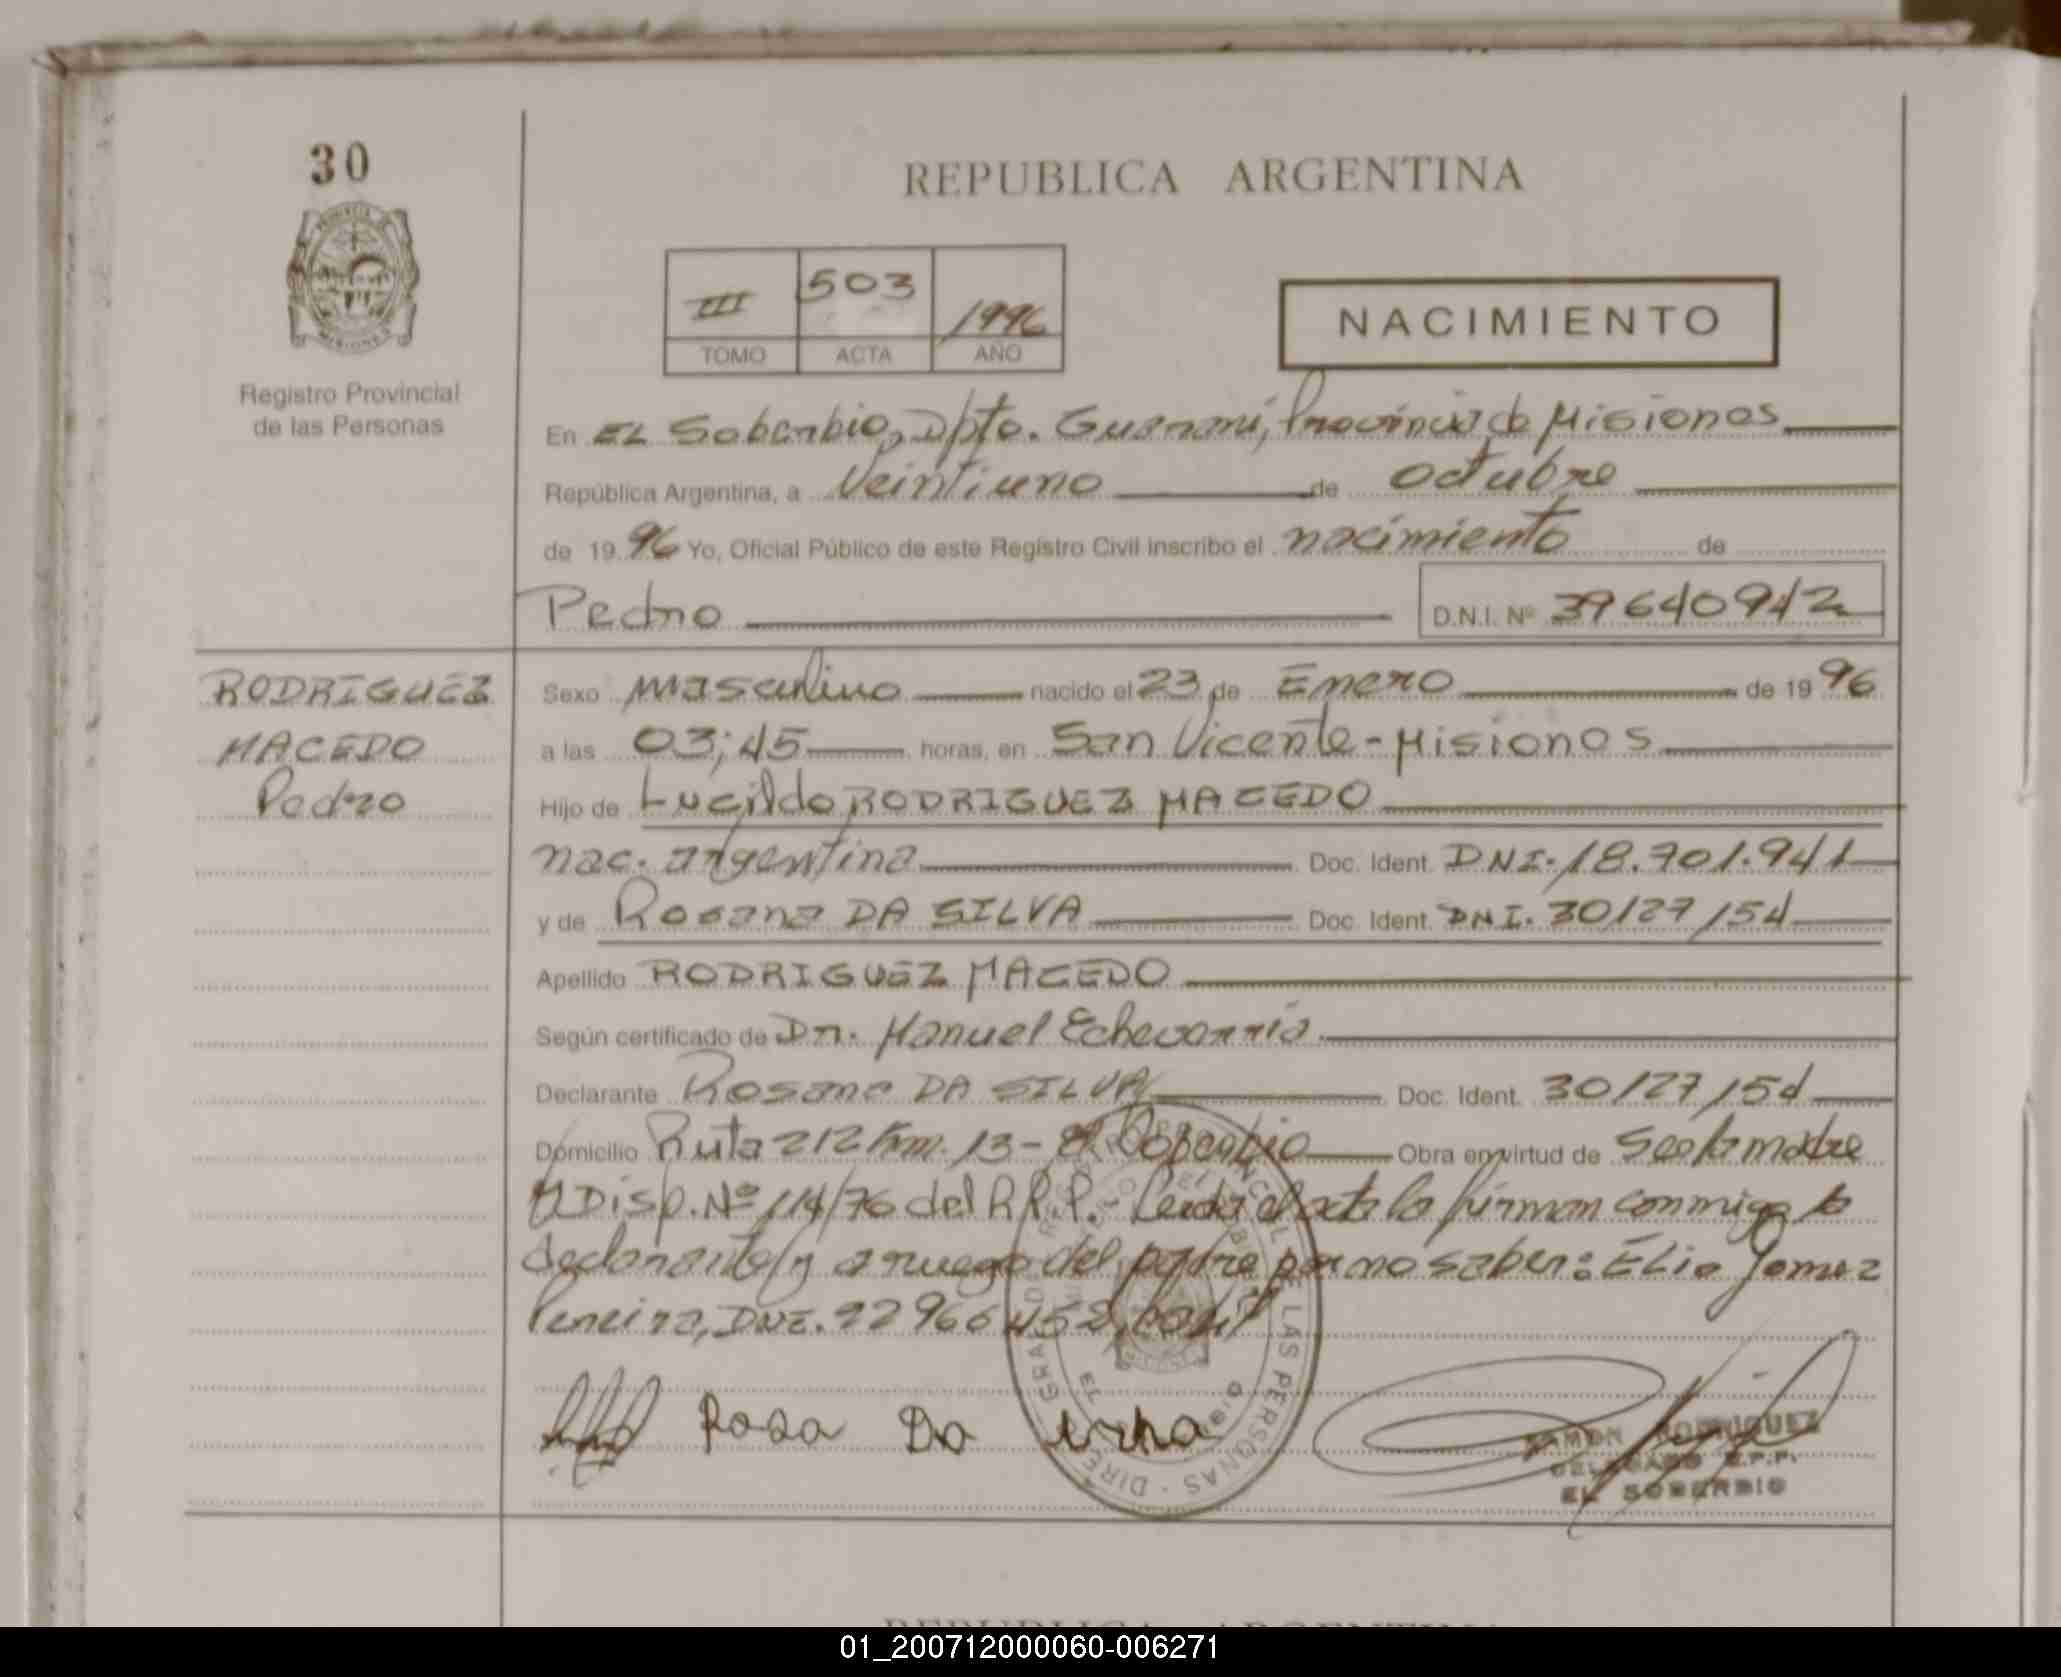 30
REPUBLICA ARGENTINA
III 503 1996
TOMO ACTA AÑO
NACIMIENTO
Registro Provincial
de las Personas
En EL Soberbio, Dpto. Guarani, Provincia de Misiones
República Argentina, a Veintiuno de octubre
de 1996 Yo, Oficial Público de este Registro Civil inscribo el nacimiento de
Pedro D.N.I. Nº 39640942
RODRIGUEZ
MACEDO
Pedro
Sexo masculino nacido el 23 de Enero de 1996
a las 03;45 horas, en San Vicente - Misiones
Hijo de Lucildo RODRIGUEZ MACEDO
nac. argentina Doc. Ident. DNI. 18.701.941
y de Rosana DA SILVA Doc. Ident. DNI. 30127154
Apellido RODRIGUEZ MACEDO
Según certificado de Dr. Manuel Echevarria
Declarante Rosana DA SILVA Doc. Ident. 30127154
Domicilio Ruta 212 Km. 13 - El Soberbio Obra en virtud de ser la madre
y Disp. Nº 114/76 del R.P.P. - Leida el acta la firman conmigo la
declarante y a ruego del padre por no saber: Elio Gomez
Pereira, DNI. 22966452
Rosa Da
RAMON RODRIGUEZ
DELEGADO R.P.P.
EL SOBERBIO
REPUBLICA ARGENTINA
01_200712000060-006271